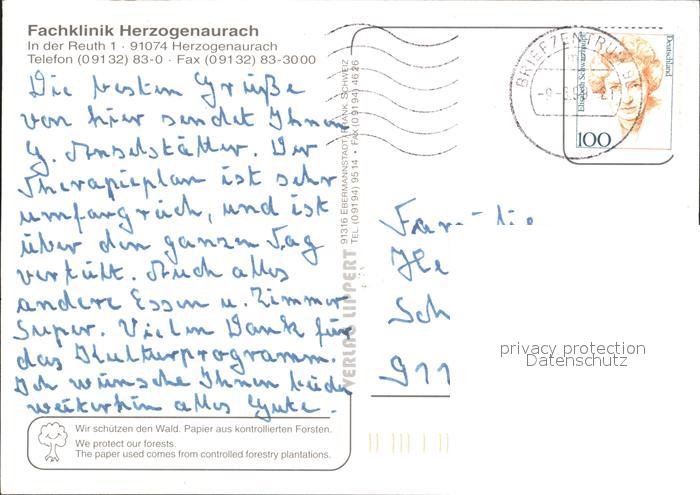 Fachklinik Herzogenaurach
In der Reuth 1 · 91074 Herzogenaurach
Telefon (09132) 83-0 · Fax (09132) 83-3000
Die besten Grüße
von hier sendet Ihnen
G. Anselstätter. Der
Therapieplan ist sehr
umfangreich, und ist
über den ganzen Tag
verteilt. Auch alles
andere Essen u. Zimmer
Super. Vielen Dank für
das Kulturprogramm.
Ich wünsche Ihnen beide
weiterhin alles Gute.
Wir schützen den Wald. Papier aus kontrollierten Forsten.
We protect our forests.
The paper used comes from controlled forestry plantations.
VERLAG LIPPERT
91316 EBERMANNSTADT/FRÄNK. SCHWEIZ
TEL. (09194) 9514 · FAX (09194) 4626
BRIEFZENTRUM
Deutschland
100
Familie
He
Sch
911
privacy protection
Datenschutz